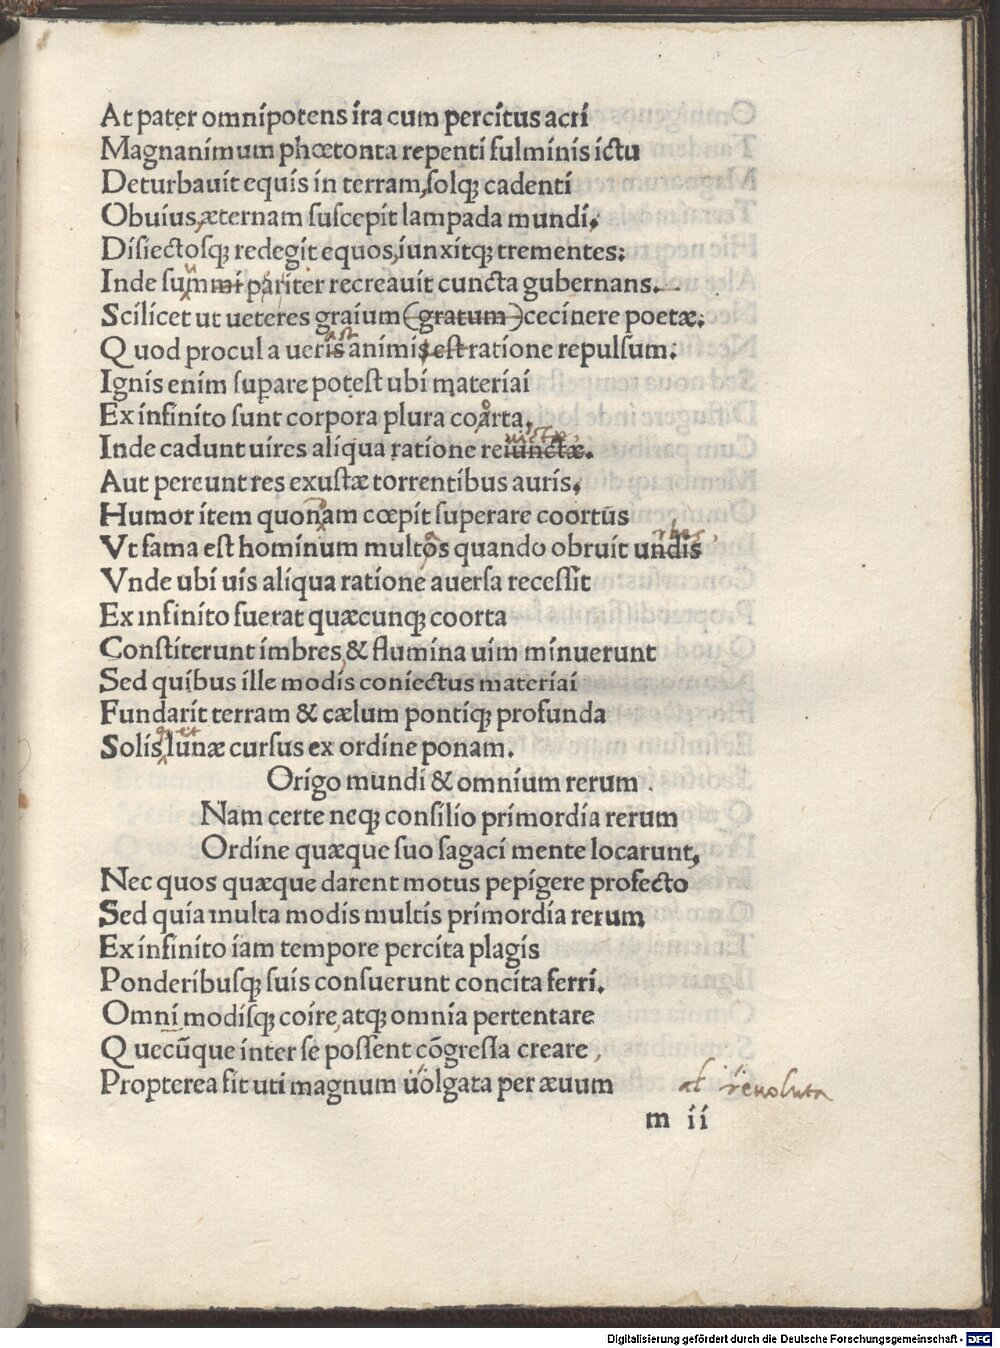 At pater omnipotens ira cum percitus acri
Magnanimum phœtonta repenti fulminis ictu
Deturbauit equis in terram, solqꝫ cadenti
Obuius, æternam suscepit lampada mundi.
Disiectosqꝫ redegit equos, iunxitqꝫ trementes:
Inde summi pariter recreauit cuncta gubernans.
Scilicet ut ueteres graium (gratum) cecinere poetæ:
Quod procul a ueris animis est ratione repulsum:
est
Ignis enim supare potest ubi materiai
Ex infinito sunt corpora plura coarta,
o
Inde cadunt uires aliqua ratione reiunctæ.
uictæ,
Aut pereunt res exustæ torrentibus auris.
Humor item quonam cœpit superare coortūs
Vt fama est hominum multos quando obruit undis
a
rbes,
Vnde ubi uis aliqua ratione auersa recessit
Ex infinito fuerat quæcunqꝫ coorta
Constiterunt imbres, & flumina uim minuerunt
Sed quibus ille modis coniectus materiai
Fundarit terram & cælum pontiqꝫ profunda
Solis, lunæ cursus ex ordine ponam.
Origo mundi & omnium rerum
Nam certe neqꝫ consilio primordia rerum
Ordine quæque suo sagaci mente locarunt,
Nec quos quæque darent motus pepigere profecto
Sed quia multa modis multis primordia rerum
Ex infinito iam tempore percita plagis
Ponderibusqꝫ suis consuerunt concita ferri.
Omni modisqꝫ coire, atqꝫ omnia pertentare
Quecūque inter se possent cōgressa creare,
Propterea fit uti magnum uolgata per æuum
al reuoluta
m ii
Digitalisierung gefördert durch die Deutsche Forschungsgemeinschaft - DFG